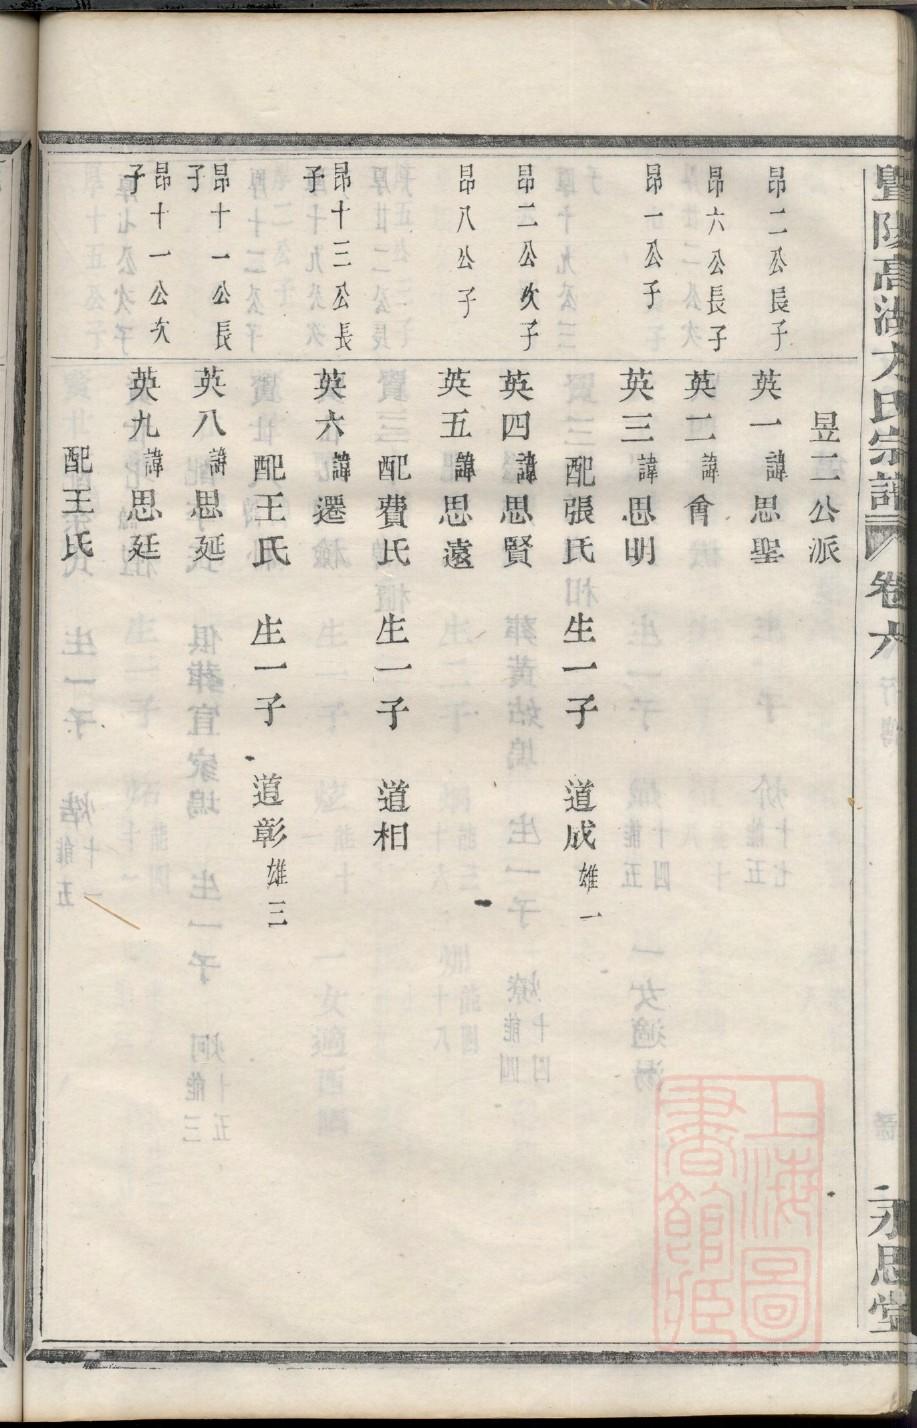 暨陽高湖方氏宗譜
卷六
永思堂
昱二公派
昂二公長子
英一諱思聖
昂六公長子
英二諱會
昂一公子
英三諱思明
配張氏 生一子 道成雄一
昂二公次子
英四諱思賢
昂八公子
英五諱思遠
配費氏 生一子 道相
昂十三公長子
英六諱遷
配王氏 生一子 道彰雄三
昂十一公長子
英八諱思延
昂十一公次子
英九諱思廷
配王氏
上海圖書館藏